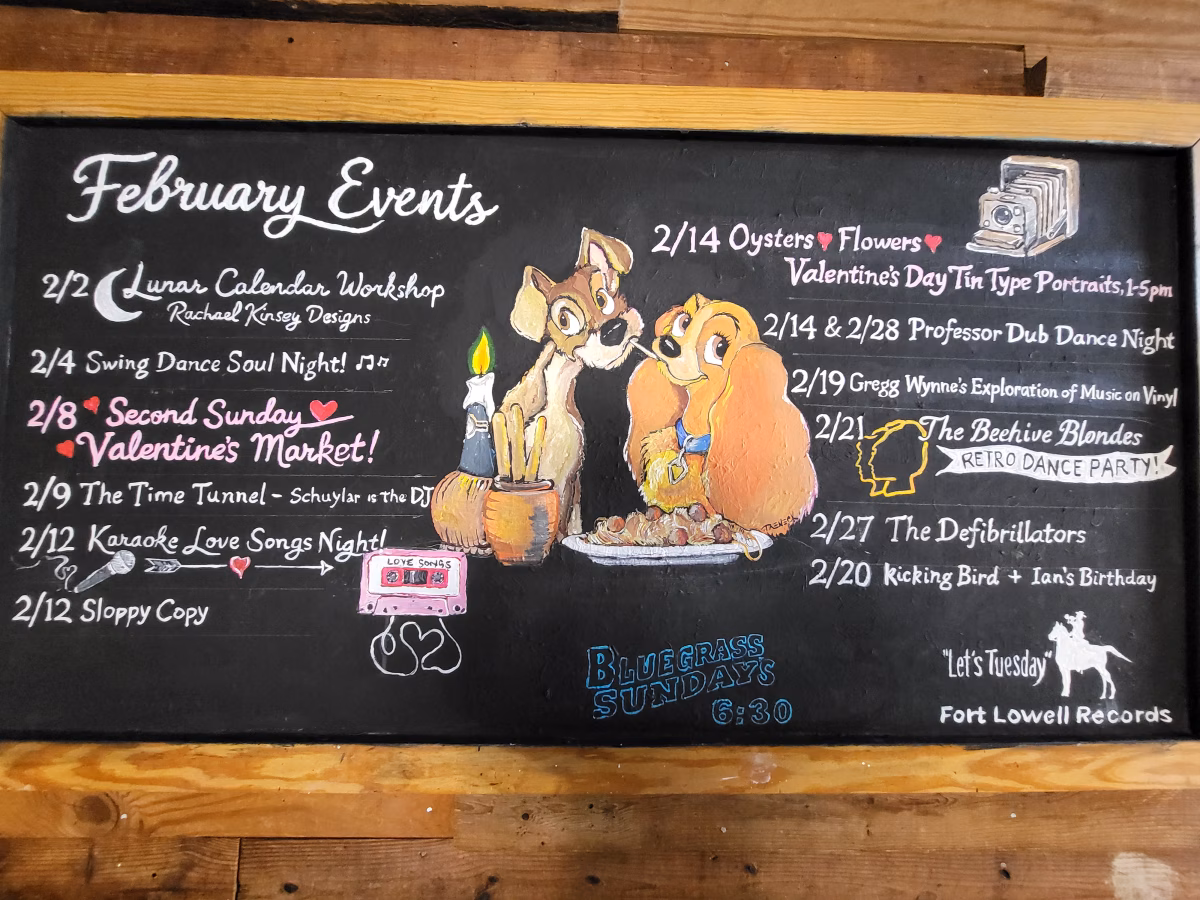 February Events
2/2 Lunar Calendar Workshop
Rachael Kinsey Designs
2/4 Swing Dance Soul Night!
2/8 Second Sunday
Valentine's Market!
2/9 The Time Tunnel - Schuylar is the DJ
2/12 Karaoke Love Songs Night!
2/12 Sloppy Copy
LOVE SONGS
BLUEGRASS
SUNDAY'S
6:30
2/14 Oysters Flowers
Valentine's Day Tin Type Portraits, 1-5pm
2/14 & 2/28 Professor Dub Dance Night
2/19 Gregg Wynne's Exploration of Music on Vinyl
2/21 The Beehive Blondes
RETRO DANCE PARTY!
2/27 The Defibrillators
2/20 Kicking Bird + Ian's Birthday
"Let's Tuesday"
Fort Lowell Records